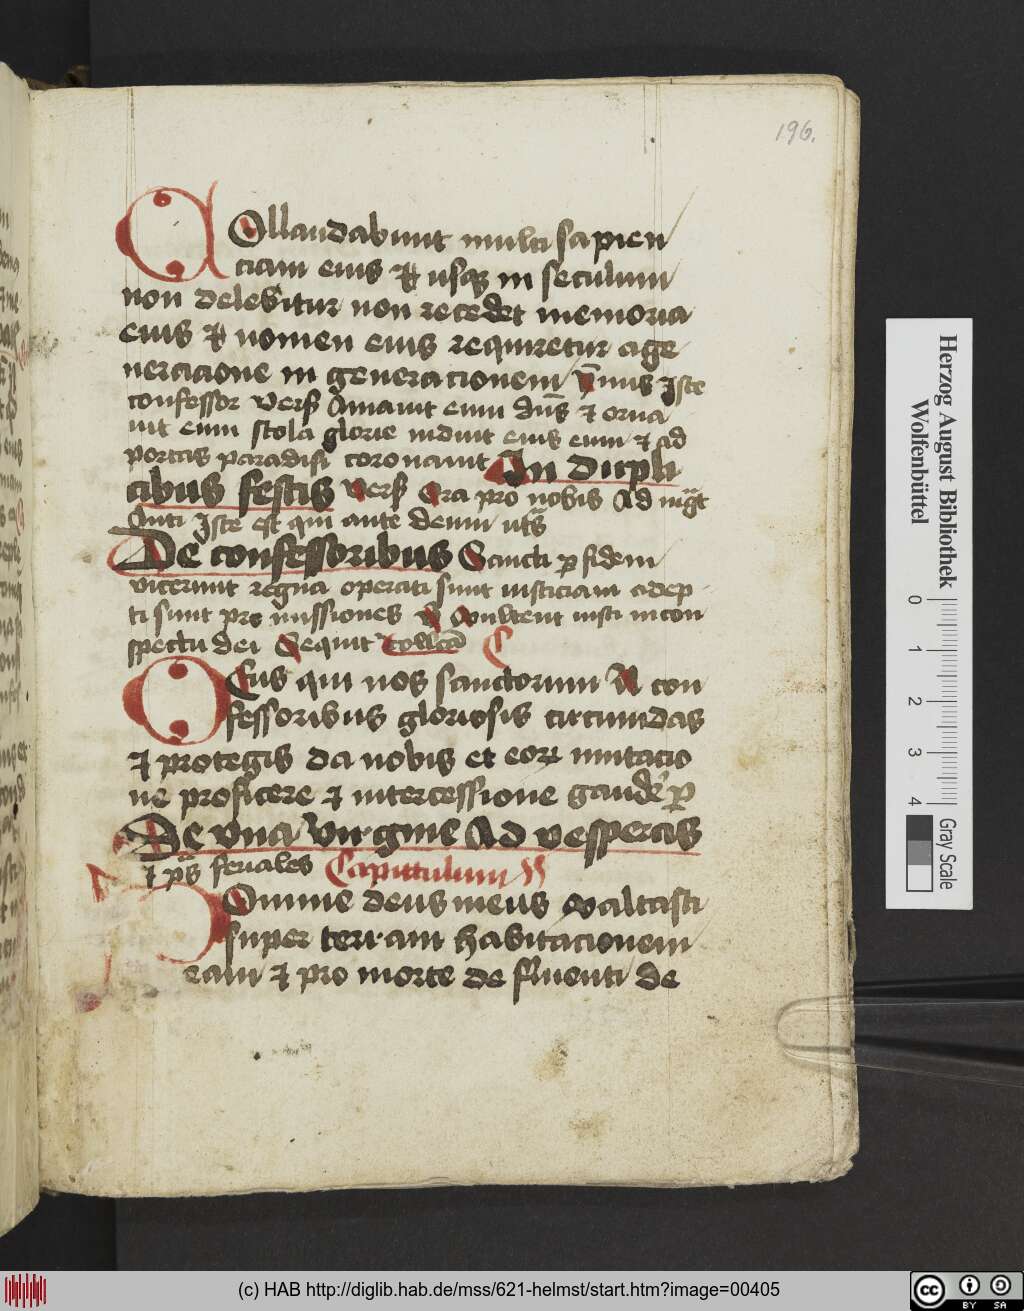 196.
COllaudabunt multi sapien
ciam eius et usque in seculum
non delebitur non recedet memoria
eius et nomen eius requiretur a ge
neracione in generacionem ymnus Iste
confessor Vers Amauit eum dns et orna
uit eum stola glorie induit eius eum et ad
portas paradisi coronauit In dupli
cibus festis vers Ora pro nobis Ad
Iste est qui ante deum
De confessoribus Sancti per fidem
vicerunt regna operati sunt iusticiam adep
ti sunt pro missiones v Exultent iusti in con
spectu dei Sequit collecta
DEus qui nos sanctorum N con
fessoribus gloriosis circumdas
et protegis da nobis et eorum imitacio
ne proficere et intercessione gaudere p
De vna virgine Ad vesperas
et feriales Capittulum
Domine deus meus exaltasti
super terram habitacionem
eam et pro morte de fluenti de
Herzog August Bibliothek
Wolfenbüttel
0 1 2 3 4
Gray Scale
(c) HAB http://diglib.hab.de/mss/621-helmst/start.htm?image=00405
cc BY SA